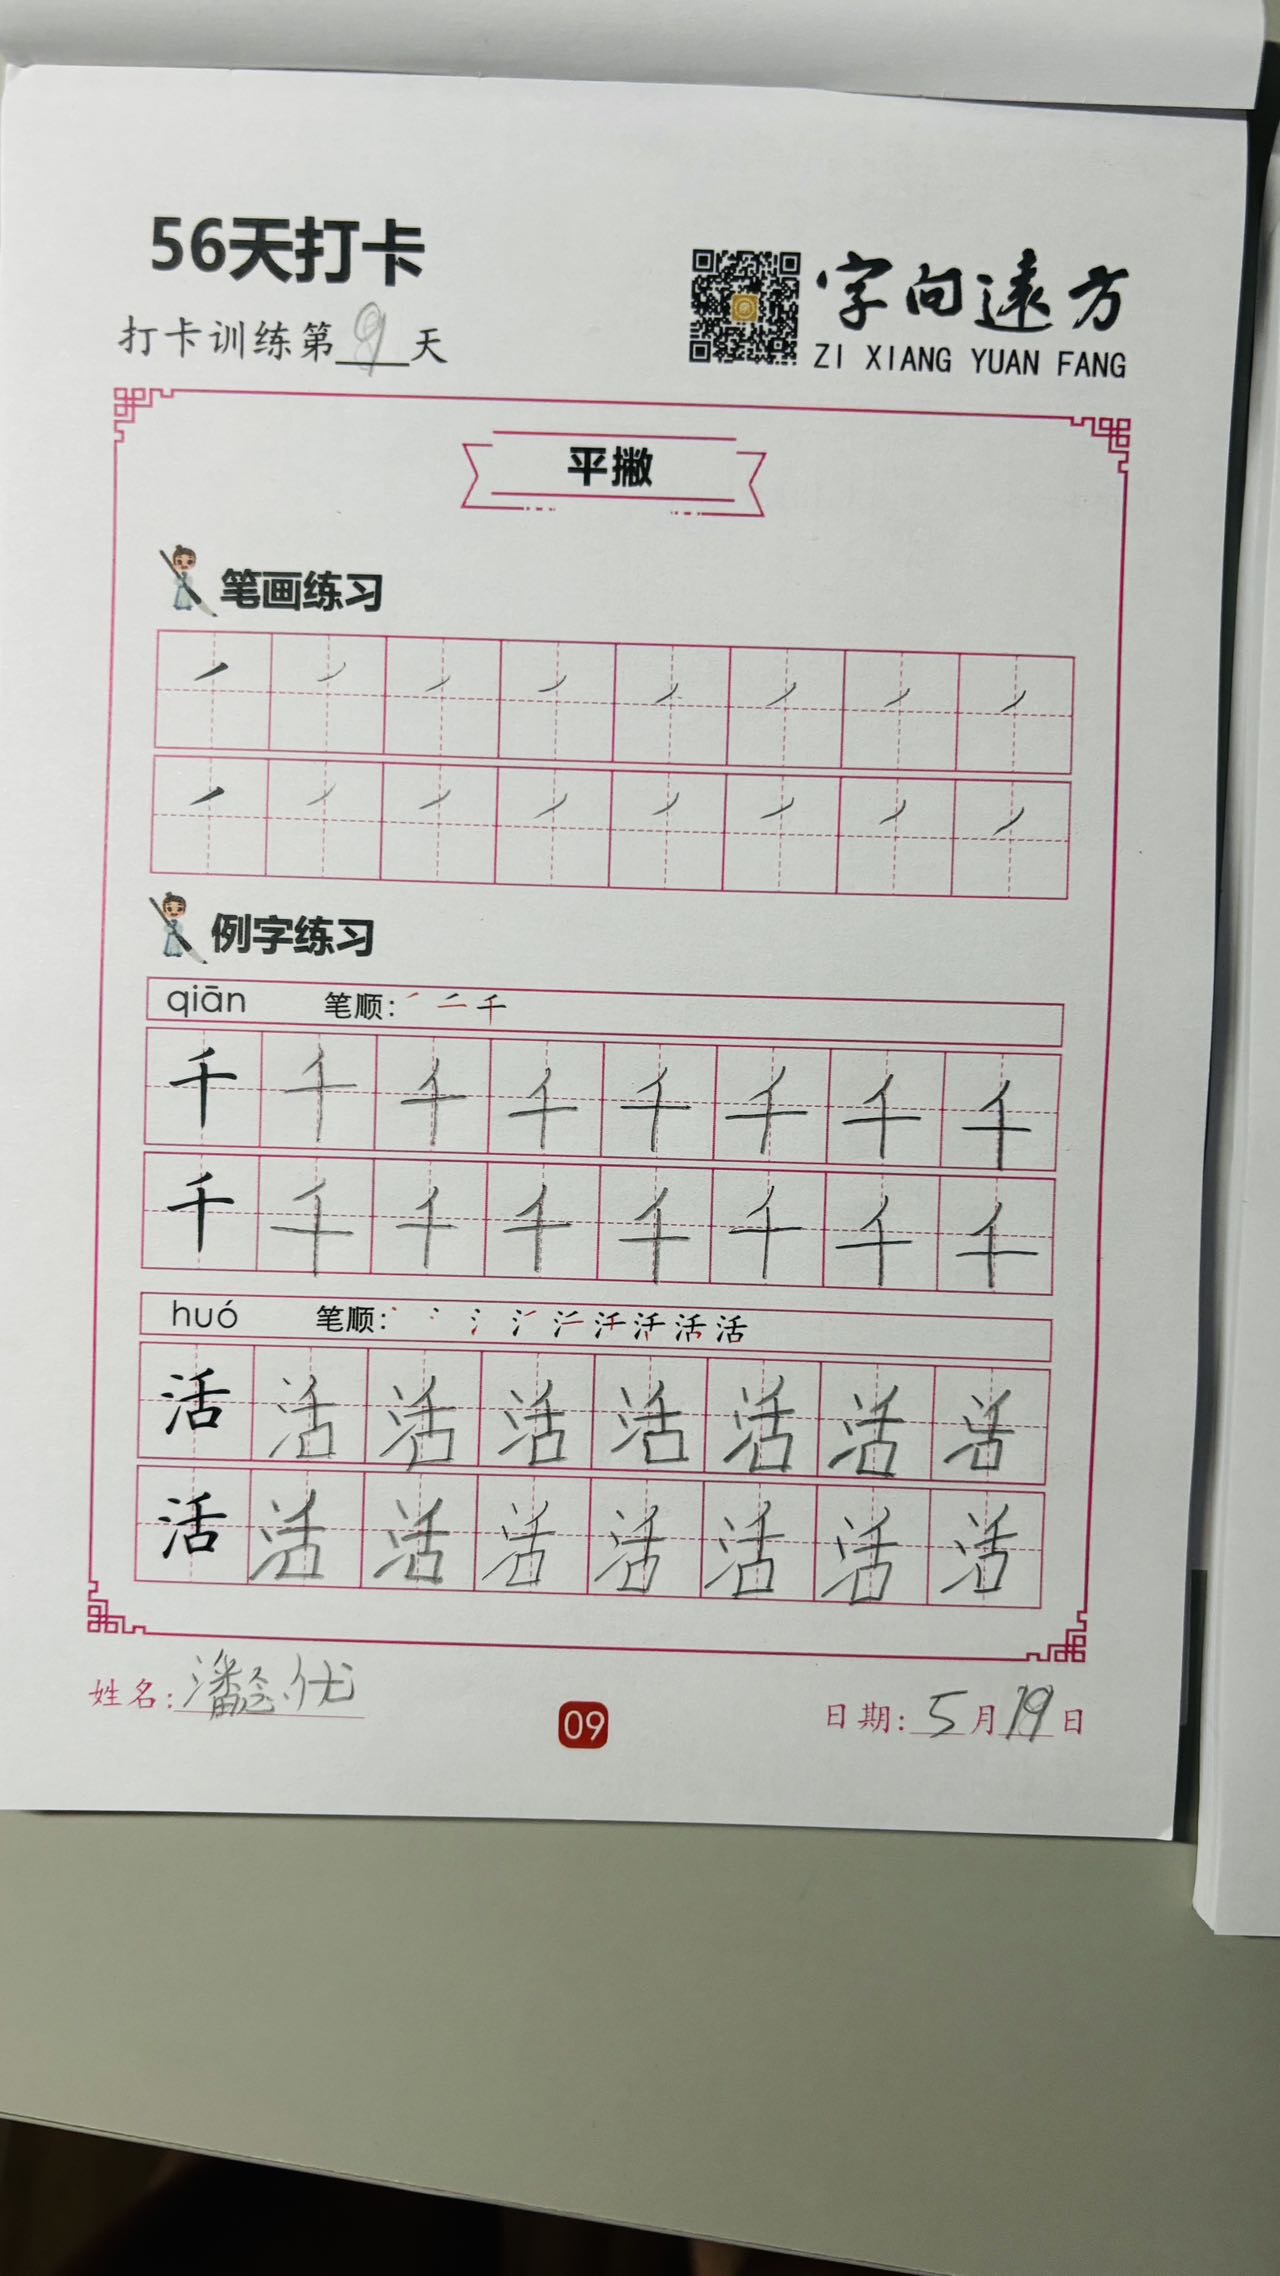 56天打卡
打卡训练第9天
字向遠方
ZI XIANG YUAN FANG
平撇
笔画练习
例字练习
qiān 笔顺: 千
千 千 千 千 千 千 千 千
千 千 千 千 千 千 千 千
huó 笔顺: 活
活 活 活 活 活 活 活 活
活 活 活 活 活 活 活 活
姓名: 潘 优
09
日期: 5月19日